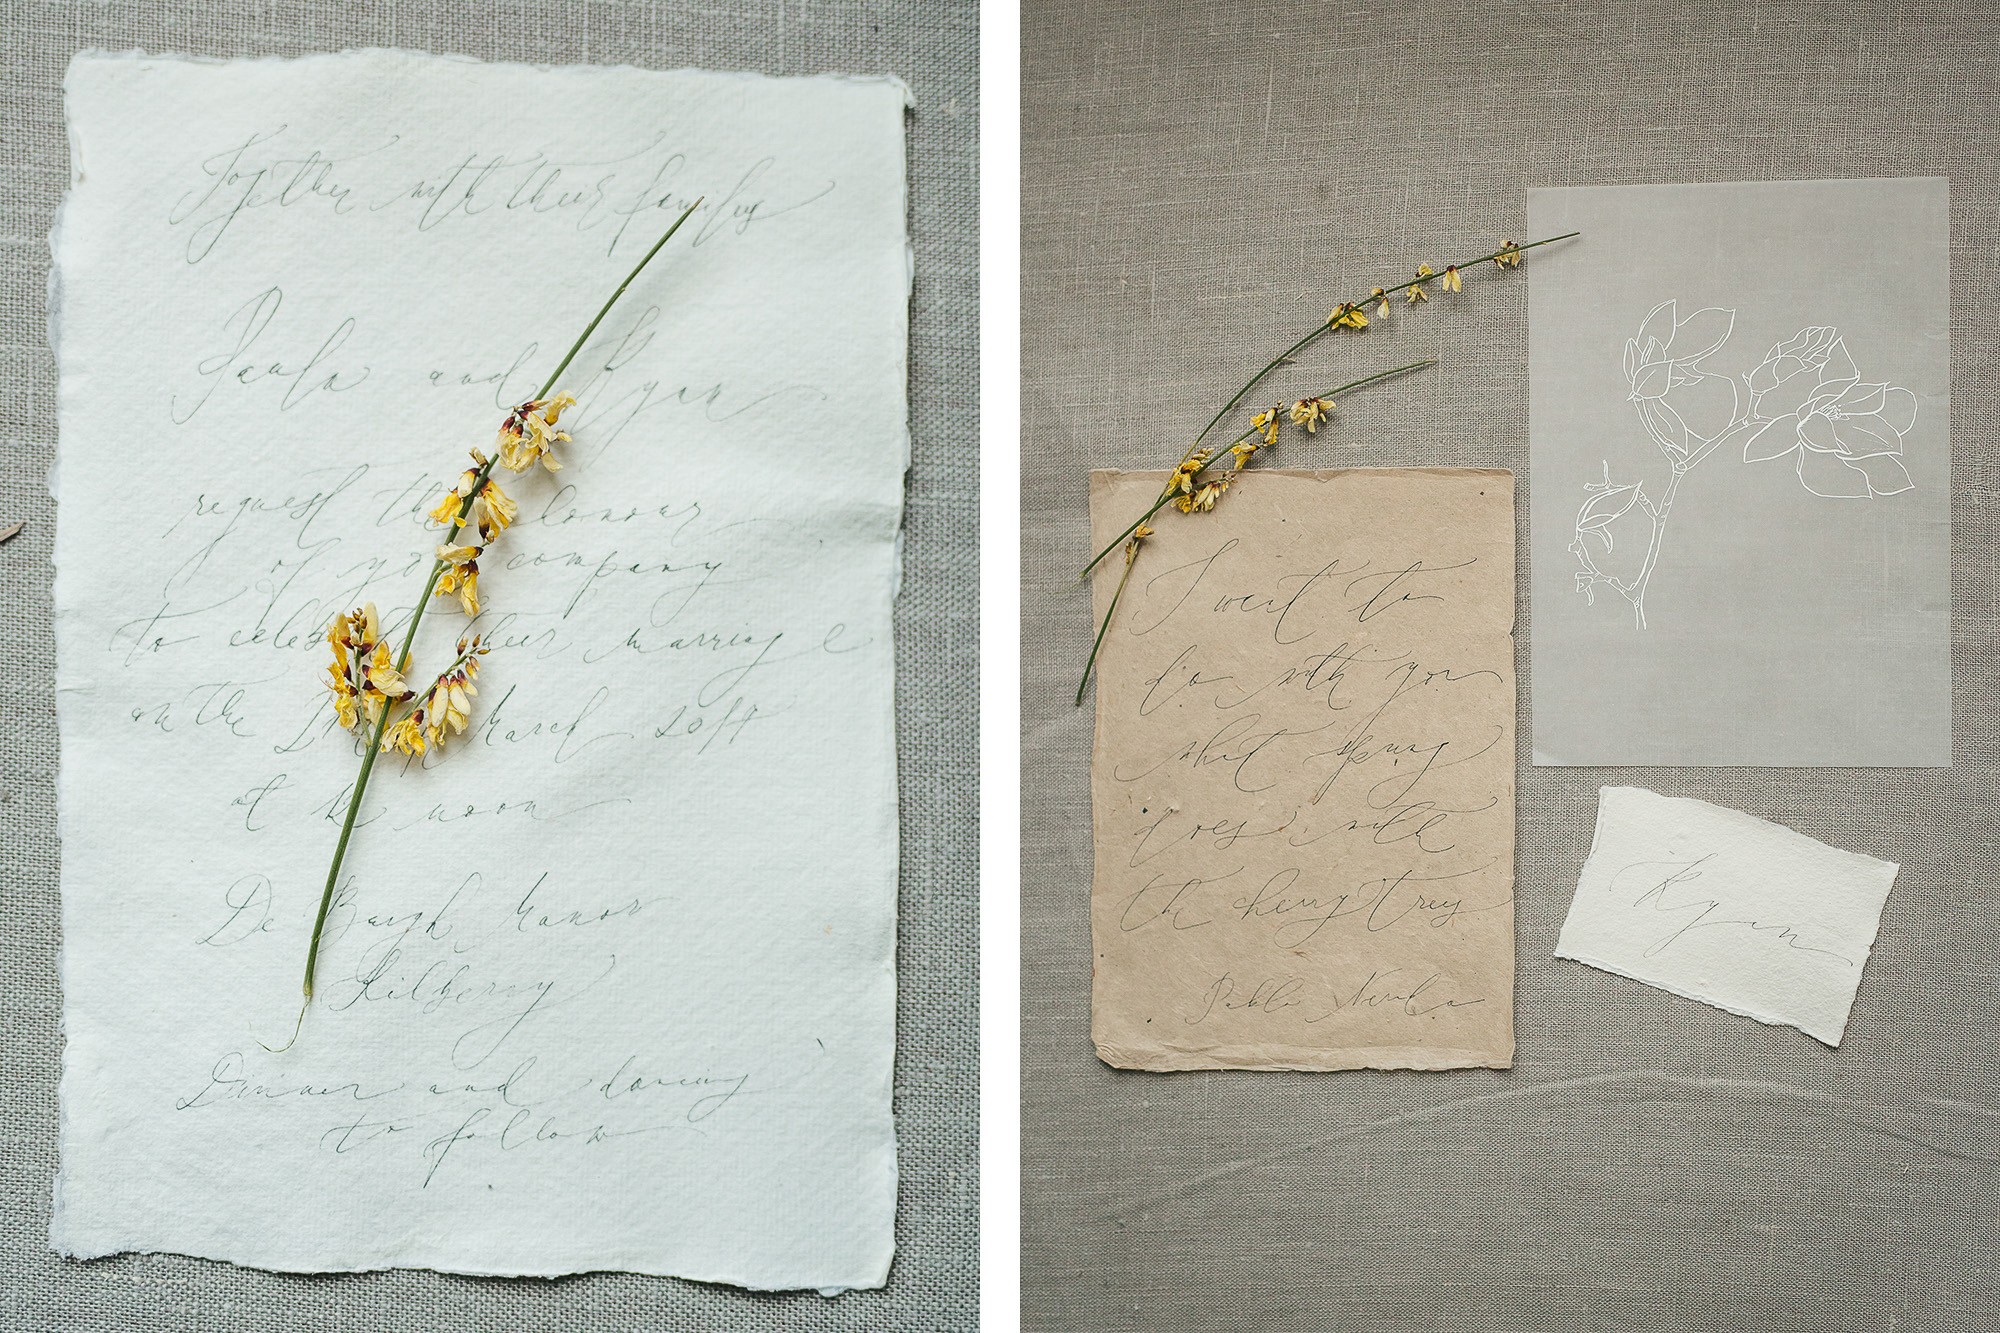 Together with their families
Paula and Ryan
request the honour
of company
to their marriage
on the March
at 12 noon
De Burgh Manor
Kilberry
Dinner and dancing
to follow
I want to
do with you
what spring
does with
the cherry trees
Pablo Neruda
Ryan